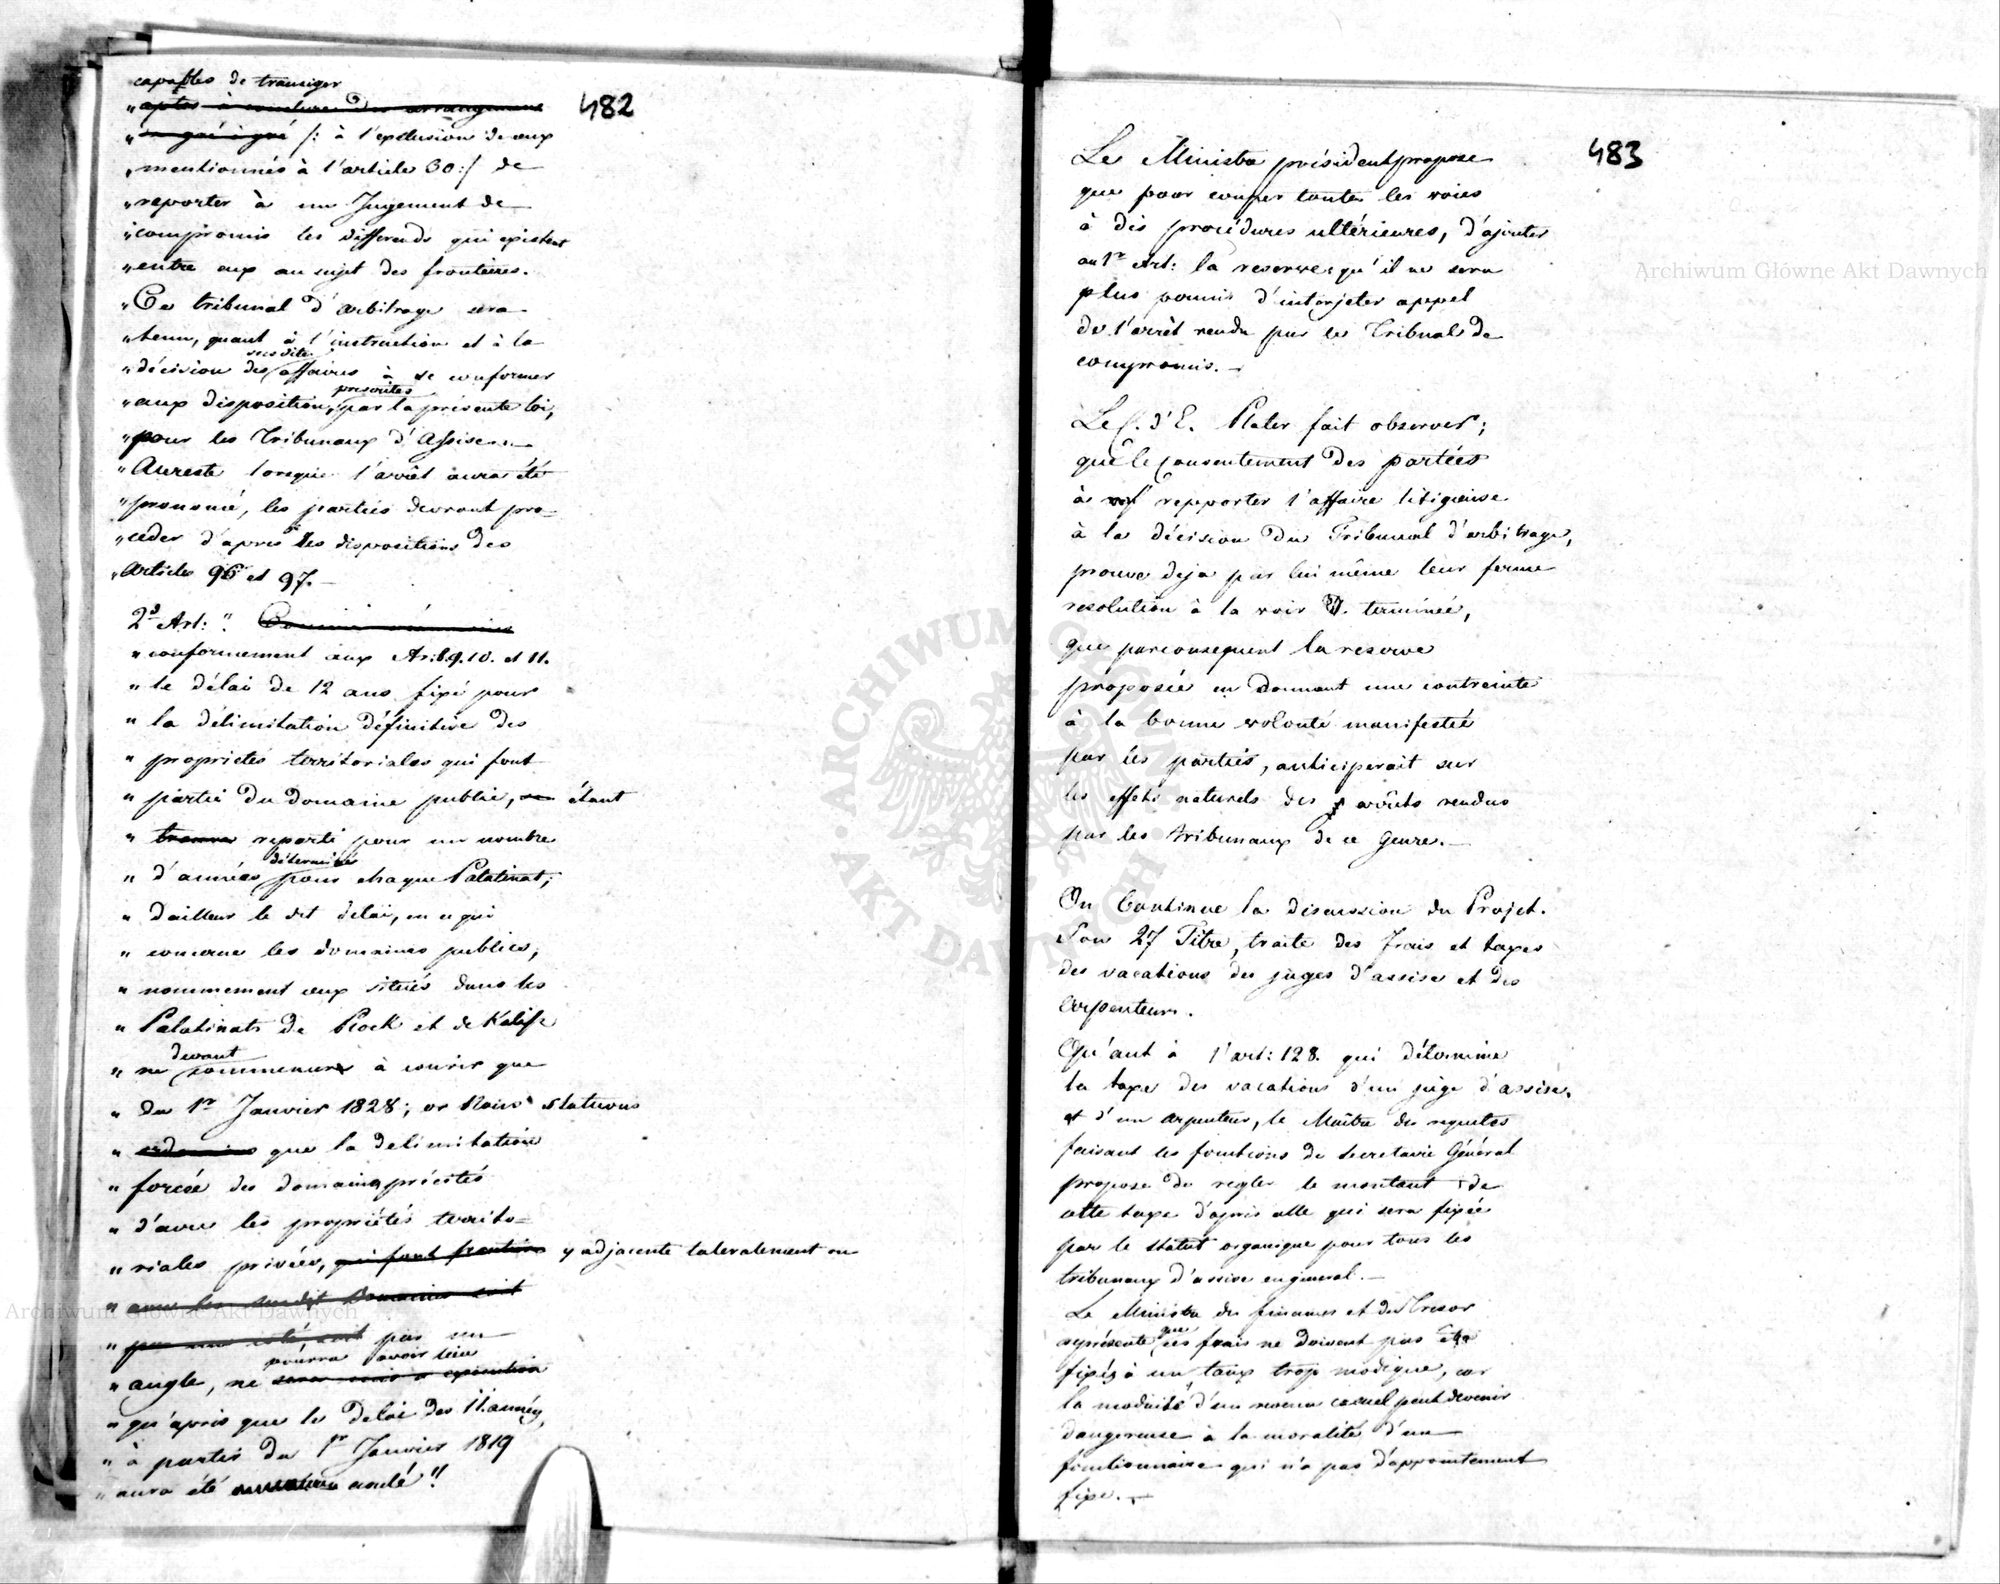 482
capables de transiger
„aptes à conclure des arrangemens
„de gré à gré /: à l'exclusion de ceux
„mentionnés à l'article 30:/ de
„reporter à un Jugement de
„compromis les differends qui existent
„entre eux au sujet des frontières.
„Ce tribunal d'arbitrage sera
„tenu, quant à l'instruction et à la
susdites
„décision des affaires à se conformer
prescrites
„aux dispositions, par la présente loi,
„pour les Tribunaux d'Assises.
„Aureste lorsque l'arrêt aura été
„prononcé, les parties devront pro=
„ceder d'après les dispositions des
„Articles 96 et 97.—
2d Art: "
„conformement aux Art. 9. 10. et 11.
„le délai de 12 ans fixé pour
„la délimitation définitive des
„proprietés territoriales qui font
„partie du domaine public, étant
„trouve reporté pour un nombre
déterminé
„d'années pour chaque Palatinat;
„d'ailleur le dit délai, en ce qui
„concerne les domaines publics,
„nommement ceux situés dans les
„Palatinats de Plock et de Kalisz
devant
„ne commencer à courir que
„du 1r Janvier 1828; or Nous statuons
„ordonnons que la delimitation
„forcée des domaines précités
„d'avec les propriétés territo=
„riales privées, qui font frontière y adjacente lateralement ou
„avec les susdits Domaines soit
„par un côté soit par un
pourra avoir lieu
„angle, ne sera mis à execution
„qu'après que le Delai des 11. années,
„à partir du 1r Janvier 1819
„aura été écoulé"!
483
Le Ministre président propose
que pour couper toutes les voies
à des procédures ultérieures, d'ajouter
au 1r Art: la reserve; qu'il ne sera
plus permis d'interjeter appel
de l'arrêt rendu par les Tribunal de
compromis. —
Le C. d'E. Plater fait observer;
que le Consentement des parties
à repporter l'affaire litigieuse
à la décision du Tribunal d'arbitrage,
prouve deja par lui même leur ferme
resolution à la voir terminée,
que parconsequent la reserve
proposée en donnant une contreinte
à la bonne volonté manifestée
par les parties, anticiperait sur
les effets naturels des arrêts rendus
par les tribunaux de ce genre.—
On Continue la discussion du Projet.
Son 27 Titre, traite des frais et taxes
des vacations des juges d'assise et des
arpenteurs.
Qu'ant à l'art: 128. qui détermine
la taxe des vacations d'un juge d'assise,
et d'un arpenteur, le Maître des requetes
faisant les fonctions de Secretaire Général
propose de regler le montant de
cette taxe d'après celle qui sera fixée
par le statut organique pour tous les
tribunaux d'assise en general.—
Le Ministre des finances et du Tresor
que
représente ces frais ne doivent pas être
fixés à un taux trop modique, car
la modicité d'un revenu casuel peut devenir
dangereuse à la moralité d'un
fonctionnaire qui n'a pas d'appointement
fixe.—
Archiwum Główne Akt Dawnych
Archiwum Główne Akt Dawnych
ARCHIWUM GŁÓWNE · AKT DAWNYCH ·